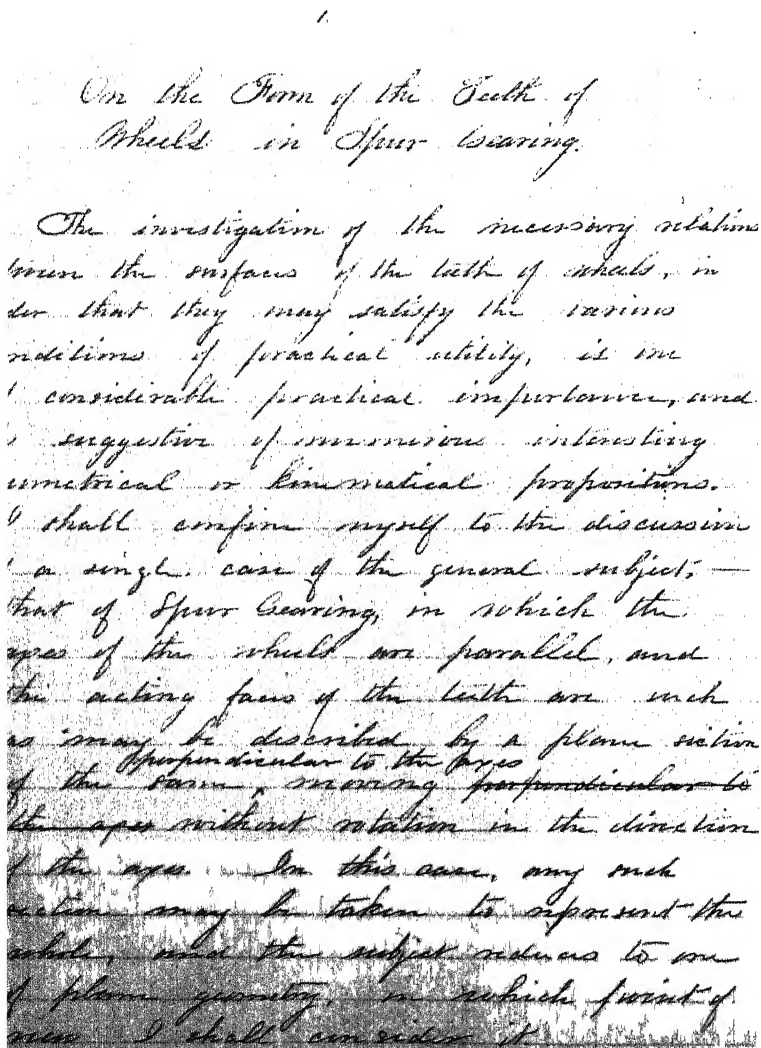 1.
On the Form of the Teeth of
Wheels in Spur Gearing.
The investigation of the necessary relations
tween the surfaces of the teeth of wheels, in
der that they may satisfy the various
nditions of practical utility, is one
considerable practical importance, and
suggestive of numerous interesting
ometrical or kinematical propositions.
I shall confine myself to the discussion
a single case of the general subject,—
that of Spur Gearing, in which the
axes of the wheels are parallel, and
the acting faces of the teeth are such
as may be described by a plane section
perpendicular to the axes
of the same, moving perpendicular to
the axes without rotation in the direction
of the axes. In this case, any such
section may be taken to represent the
whole, and the subject reduces to one
of plane geometry, in which point of
view I shall consider it